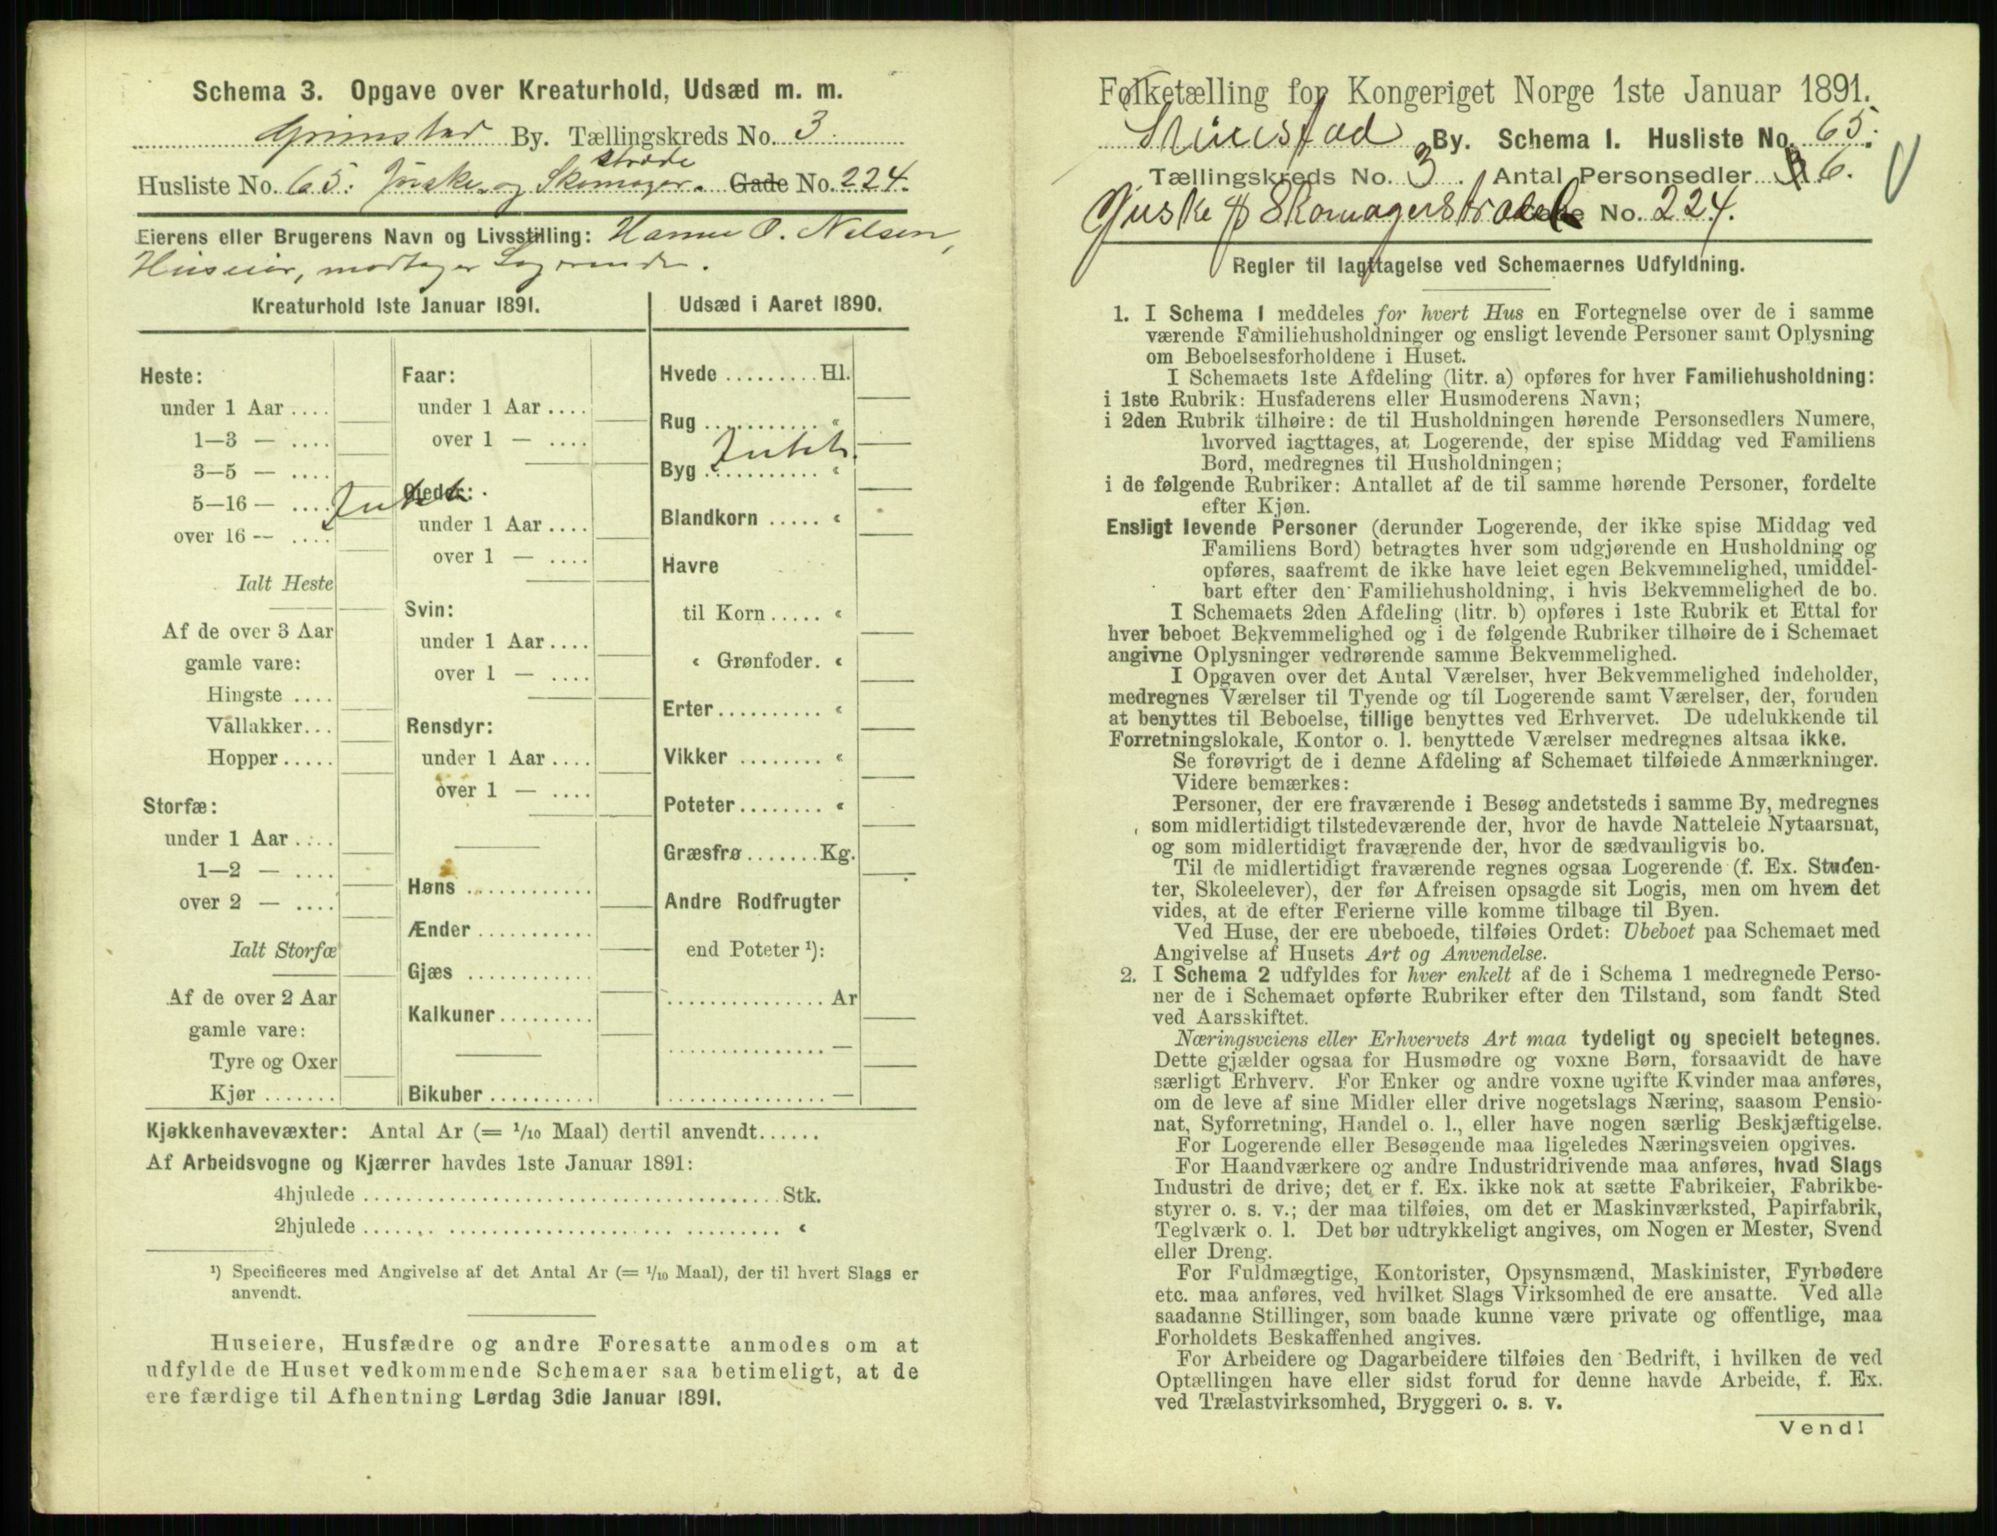 Schema 3. Opgave over Kreaturhold, Udsæd m. m.
Grimstad By. Tællingskreds No. 3.
stræde
Husliste No. 65. Juske- og Skomager- Gade No. 224.
Eierens eller Brugerens Navn og Livsstilling: Hanne O. Nelsen,
Huseier, modtager Logerende.
Kreaturhold 1ste Januar 1891.
Heste:
under 1 Aar ....
1—3 — ....
3—5 — ....
5—16 — .... Intet
over 16 — ....
Ialt Heste
Af de over 3 Aar
gamle vare:
Hingste ....
Vallakker...
Hopper.....
Storfæ:
under 1 Aar ....
1—2 — ....
over 2 — ....
Ialt Storfæ
Af de over 2 Aar
gamle vare:
Tyre og Oxer
Kjør .......
Faar:
under 1 Aar ....
over 1 — ....
Gjeder:
under 1 Aar ....
over 1 — ....
Svin:
under 1 Aar ....
over 1 — ....
Rensdyr:
under 1 Aar ....
over 1 — ....
Høns ...........
Ænder ..........
Gjæs ...........
Kalkuner.........
Bikuber ..........
Udsæd i Aaret 1890.
Hvede ......... Hl.
Rug ........... «
Intet.
Byg ........... «
Blandkorn ..... «
Havre
til Korn ..... «
« Grønfoder. «
Erter.......... «
Vikker ........ «
Poteter........ «
Græsfrø.......Kg.
Andre Rodfrugter
end Poteter ¹):
............... Ar
............... —
............... —
Kjøkkenhavevæxter: Antal Ar (= 1/10 Maal) dertil anvendt......
Af Arbeidsvogne og Kjærrer havdes 1ste Januar 1891:
4hjulede ........................................ Stk.
2hjulede ........................................ «
¹) Specificeres med Angivelse af det Antal Ar (= 1/10 Maal), der til hvert Slags er
anvendt.
Huseiere, Husfædre og andre Foresatte anmodes om at
udfylde de Huset vedkommende Schemaer saa betimeligt, at de
ere færdige til Afhentning Lørdag 3die Januar 1891.
Folketælling for Kongeriget Norge 1ste Januar 1891.
Grimstad By. Schema 1. Husliste No. 65.
Tællingskreds No. 3. Antal Personsedler 6.
Juske & Skomagerstræde No. 224.
Regler til Iagttagelse ved Schemaernes Udfyldning.
1. I Schema 1 meddeles for hvert Hus en Fortegnelse over de i samme
værende Familiehusholdninger og ensligt levende Personer samt Oplysning
om Beboelsesforholdene i Huset.
I Schemaets 1ste Afdeling (litr. a) opføres for hver Familiehusholdning:
i 1ste Rubrik: Husfaderens eller Husmoderens Navn;
i 2den Rubrik tilhøire: de til Husholdningen hørende Personsedlers Numere,
hvorved iagttages, at Logerende, der spise Middag ved Familiens
Bord, medregnes til Husholdningen;
i de følgende Rubriker: Antallet af de til samme hørende Personer, fordelte
efter Kjøn.
Ensligt levende Personer (derunder Logerende, der ikke spise Middag ved
Familiens Bord) betragtes hver som udgjørende en Husholdning og
opføres, saafremt de ikke have leiet egen Bekvemmelighed, umiddel-
bart efter den Familiehusholdning, i hvis Bekvemmelighed de bo.
I Schemaets 2den Afdeling (litr. b) opføres i 1ste Rubrik et Ettal for
hver beboet Bekvemmelighed og i de følgende Rubriker tilhøire de i Schemaet
angivne Oplysninger vedrørende samme Bekvemmelighed.
I Opgaven over det Antal Værelser, hver Bekvemmelighed indeholder,
medregnes Værelser til Tyende og til Logerende samt Værelser, der, foruden
at benyttes til Beboelse, tillige benyttes ved Erhvervet. De udelukkende til
Forretningslokale, Kontor o. l. benyttede Værelser medregnes altsaa ikke.
Se forøvrigt de i denne Afdeling af Schemaet tilføiede Anmærkninger.
Videre bemærkes:
Personer, der ere fraværende i Besøg andetsteds i samme By, medregnes
som midlertidigt tilstedeværende der, hvor de havde Natteleie Nytaarsnat,
og som midlertidigt fraværende der, hvor de sædvanligvis bo.
Til de midlertidigt fraværende regnes ogsaa Logerende (f. Ex. Studen-
ter, Skoleelever), der før Afreisen opsagde sit Logis, men om hvem det
vides, at de efter Ferierne ville komme tilbage til Byen.
Ved Huse, der ere ubeboede, tilføies Ordet: Ubeboet paa Schemaet med
Angivelse af Husets Art og Anvendelse.
2. I Schema 2 udfyldes for hver enkelt af de i Schema 1 medregnede Perso-
ner de i Schemaet opførte Rubriker efter den Tilstand, som fandt Sted
ved Aarsskiftet.
Næringsveiens eller Erhvervets Art maa tydeligt og specielt betegnes.
Dette gjælder ogsaa for Husmødre og voxne Børn, forsaavidt de have
særligt Erhverv. For Enker og andre voxne ugifte Kvinder maa anføres,
om de leve af sine Midler eller drive nogetslags Næring, saasom Pensio-
nat, Syforretning, Handel o. l., eller have nogen særlig Beskjæftigelse.
For Logerende eller Besøgende maa ligeledes Næringsveien opgives.
For Haandværkere og andre Industridrivende maa anføres, hvad Slags
Industri de drive; det er f. Ex. ikke nok at sætte Fabrikeier, Fabrikbe-
styrer o. s. v.; der maa tilføies, om det er Maskinværksted, Papirfabrik,
Teglværk o. l. Det bør udtrykkeligt angives, om Nogen er Mester, Svend
eller Dreng.
For Fuldmægtige, Kontorister, Opsynsmænd, Maskinister, Fyrbødere
etc. maa anføres, ved hvilket Slags Virksomhed de ere ansatte. Ved alle
saadanne Stillinger, som baade kunne være private og offentlige, maa
Forholdets Beskaffenhed angives.
For Arbeidere og Dagarbeidere tilføies den Bedrift, i hvilken de ved
Optællingen have eller sidst forud for denne havde Arbeide, f. Ex.
ved Trælastvirksomhed, Bryggeri o. s. v.
Vend!